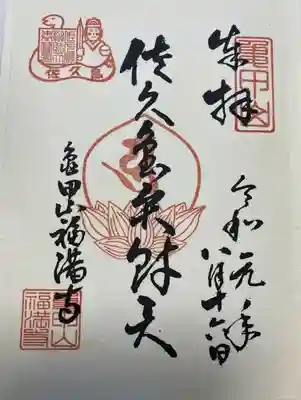 奉拝
亀甲山
令和元年
八月十六日
佐久島弁財天
佐久島
亀甲山福満寺
亀甲山
福満寺